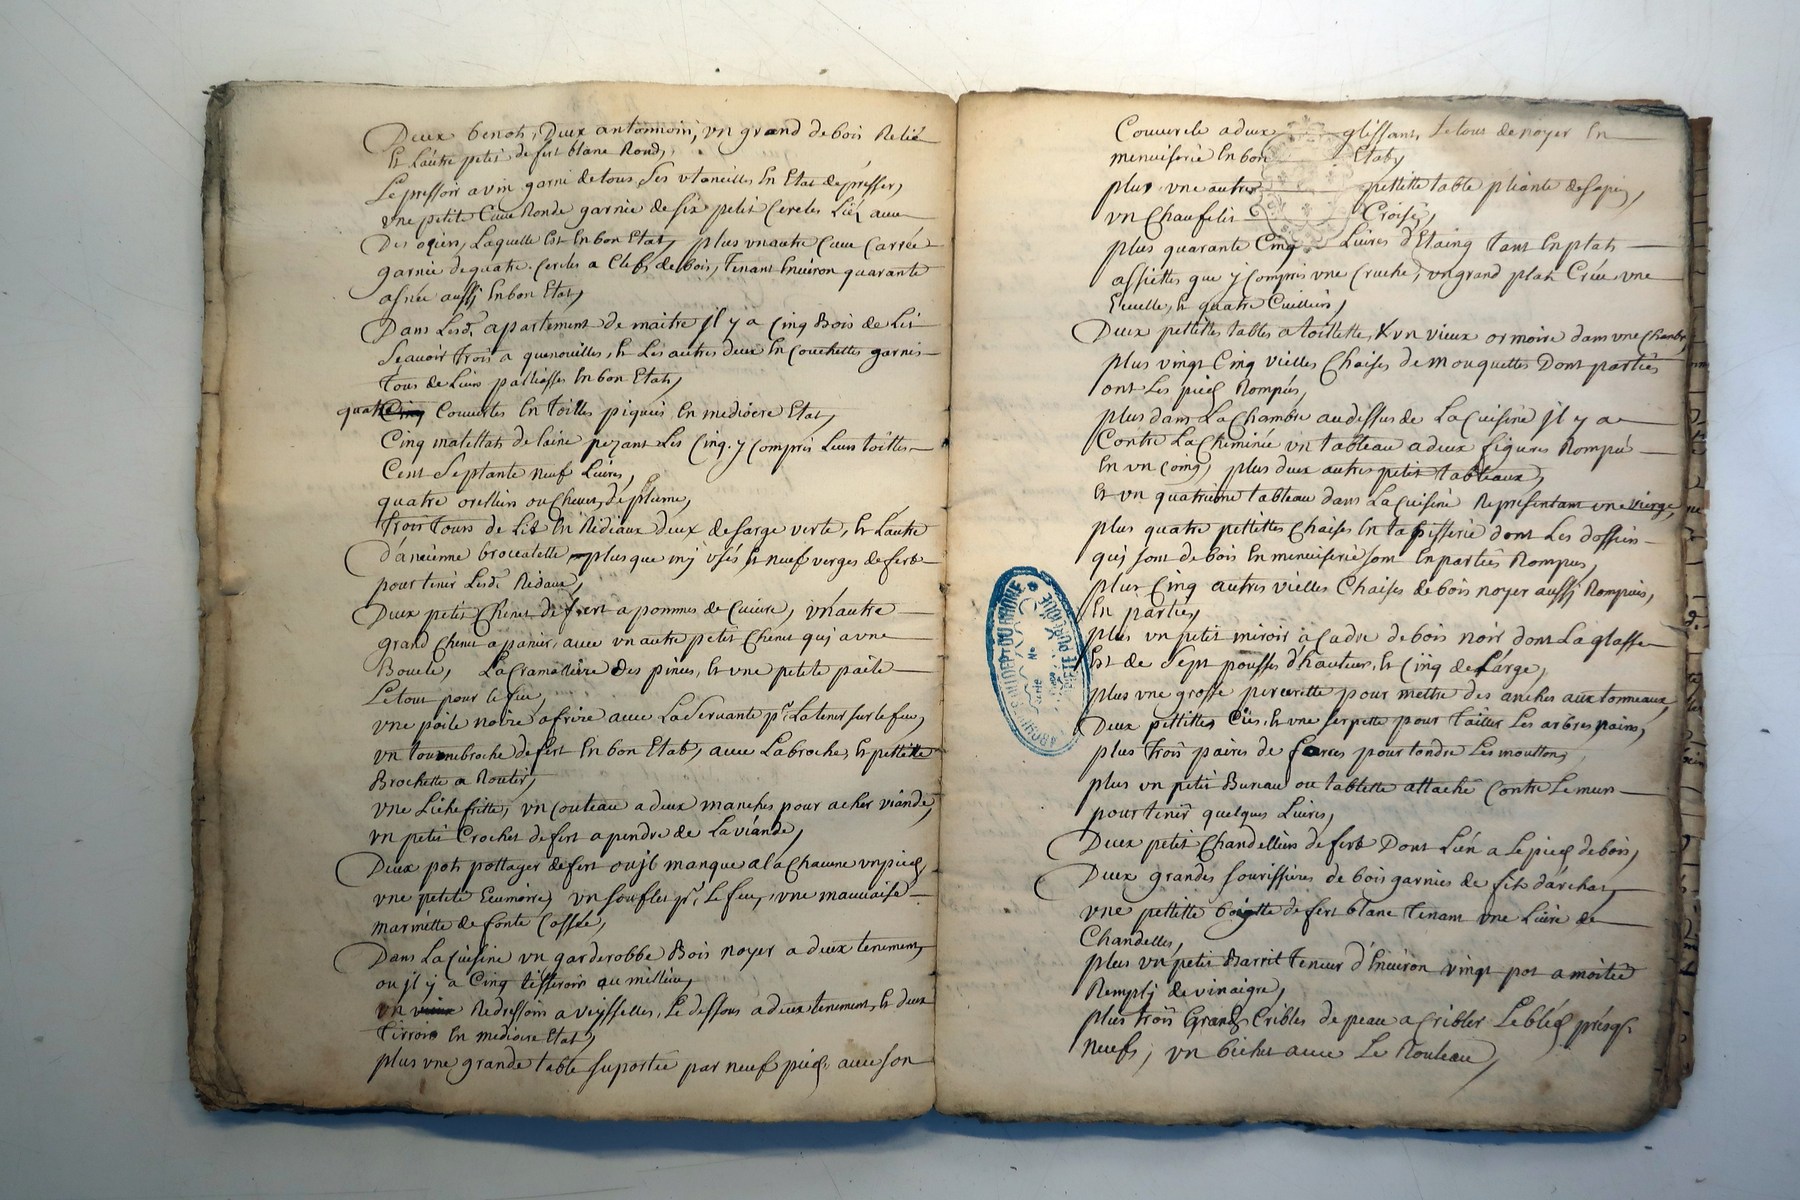 Deux benots, Deux antonnoir, un grand de bois Relié
Et L'autre petit de fert blanc Rond,
Le pressoir a vin garni de tous ses utancilles En Etat de presser,
une petite Cuve Ronde garnie de six petit Cercles Liéz avec
Des ozien, Laquelle Est En bon Etat, plus un autre Cuve Carrée
garnie de quatre Cercles a Clefs de bois, Tenant Environ quarante
asnée aussj En bon Etat,
Dans Lesd. apartement de maitre Jl y a Cinq Bois de Lit
Scavoir trois a quenouilles, Et Les autres deux En Couchettes garnis
tous de Leurs palliasses En bon Etat,
quatre Cinq Couvertes En toilles piqueés En mediocre Etat,
Cinq matellats de laine pezant Les Cinq y Compris Leurs toilles
Cent Septante neuf Livres,
quatre orelliers ou Chevet de plume,
trois tours de Lit En Rideaux deux de sarge verte, Et L'autre
d'ancienne brocatelle plus que mj usés Et neuf verges de fert
pour tenir Lesd. Ridaux,
Deux petit Chenet de fert a pommes de Cuivre, un autre
grand Chenet a panier, avec un autre petit Chenet quj a une
Boucle, La Cramallière Des pinces, Et une petite paile
Le tout pour le feu,
une poile noire a frire avec La Servante pr. La tenir sur le feu,
un tournebroche de fert En bon Etat, avec La broche, Et pettitte
Brochette a Routir,
une Lichefritte, un Couteau a deux manches pour acher viande,
un petit Crochet de fert a pendre de La viande,
Deux pots pottager de fert ou jl manque a la Chacune un pied,
une petite Ecumoire, un souflet pr. Le feu, une mauvaise
marmitte de fonte Cassée,
Dans La Cuisine un garderobbe Bois noyer a deux tenement,
ou jl y a Cinq tisseroirs au millieu,
un vieux Redressoir a veysselles, Le dessous a deux tenement, Et deux
tirroirs En mediocre Etat,
plus une grande table suportée par neuf pieds avec son
Couvercle a deux glissant, Le tout de noyer En
menuiserie En bon Etat,
plus une autre pettitte table pliante de sapin,
un Chaufelit Croisé,
plus quarante Cinq Livres d'Etaing tant En plats
assiettes que y Compris une Cruche, un grand plat Creu une
Ecuelle, Et quatre Cuilliers,
Deux pettittes tables a toillette, & un vieux ormoire dans une Chambr
plus vingt Cinq vielles Chaises de mouquettes Dont parties
ont Les pieds Rompus,
plus dans La Chambre au dessus de La Cuisine jl y a
Contre La Cheminée un tableau a deux figures Rompu
En un Coing, plus deux autres petit tableaux,
Et un quatrieme tableau dans La Cuisine Representant une vierge,
plus quatre pettittes Chaises En tapisserie dont Les dossiers
quj sont de bois En menuiserie sont En parties Rompus,
plus Cinq autres vielles Chaises de bois noyer aussj Rompuës,
En parties,
plus un petit miroir a Cadre de bois noir dont La glasse
Est de Sept pousses d'hauteur, Et Cinq de Large,
plus une grosse percerette pour mettre des anches aux tonneaux,
Deux pettittes Ciës, Et une serpette pour tailler Les arbres nains,
plus trois paires de forces pour tondre Les mouttons,
plus un petit Bureau ou tablette attaché Contre Le mur
pour tenir quelques Livres,
Deux petit Chandelliers de fert Dont L'un a Le pied de bois,
Deux grandes Sourissieres de bois garnies de fils d'archat,
une pettitte boiette de fert blanc tenant une Livre de
Chandelles,
plus un petit Barril Teneur d'Environ vingt pot a moitié
Remplj de vinaigre,
plus trois Grands Cribles de peau a Cribler Le bled, presq.
neufs, un bichet avec Le Rouleau,
ARCHIVES DU DEPT DU RHÔNE
Serie No